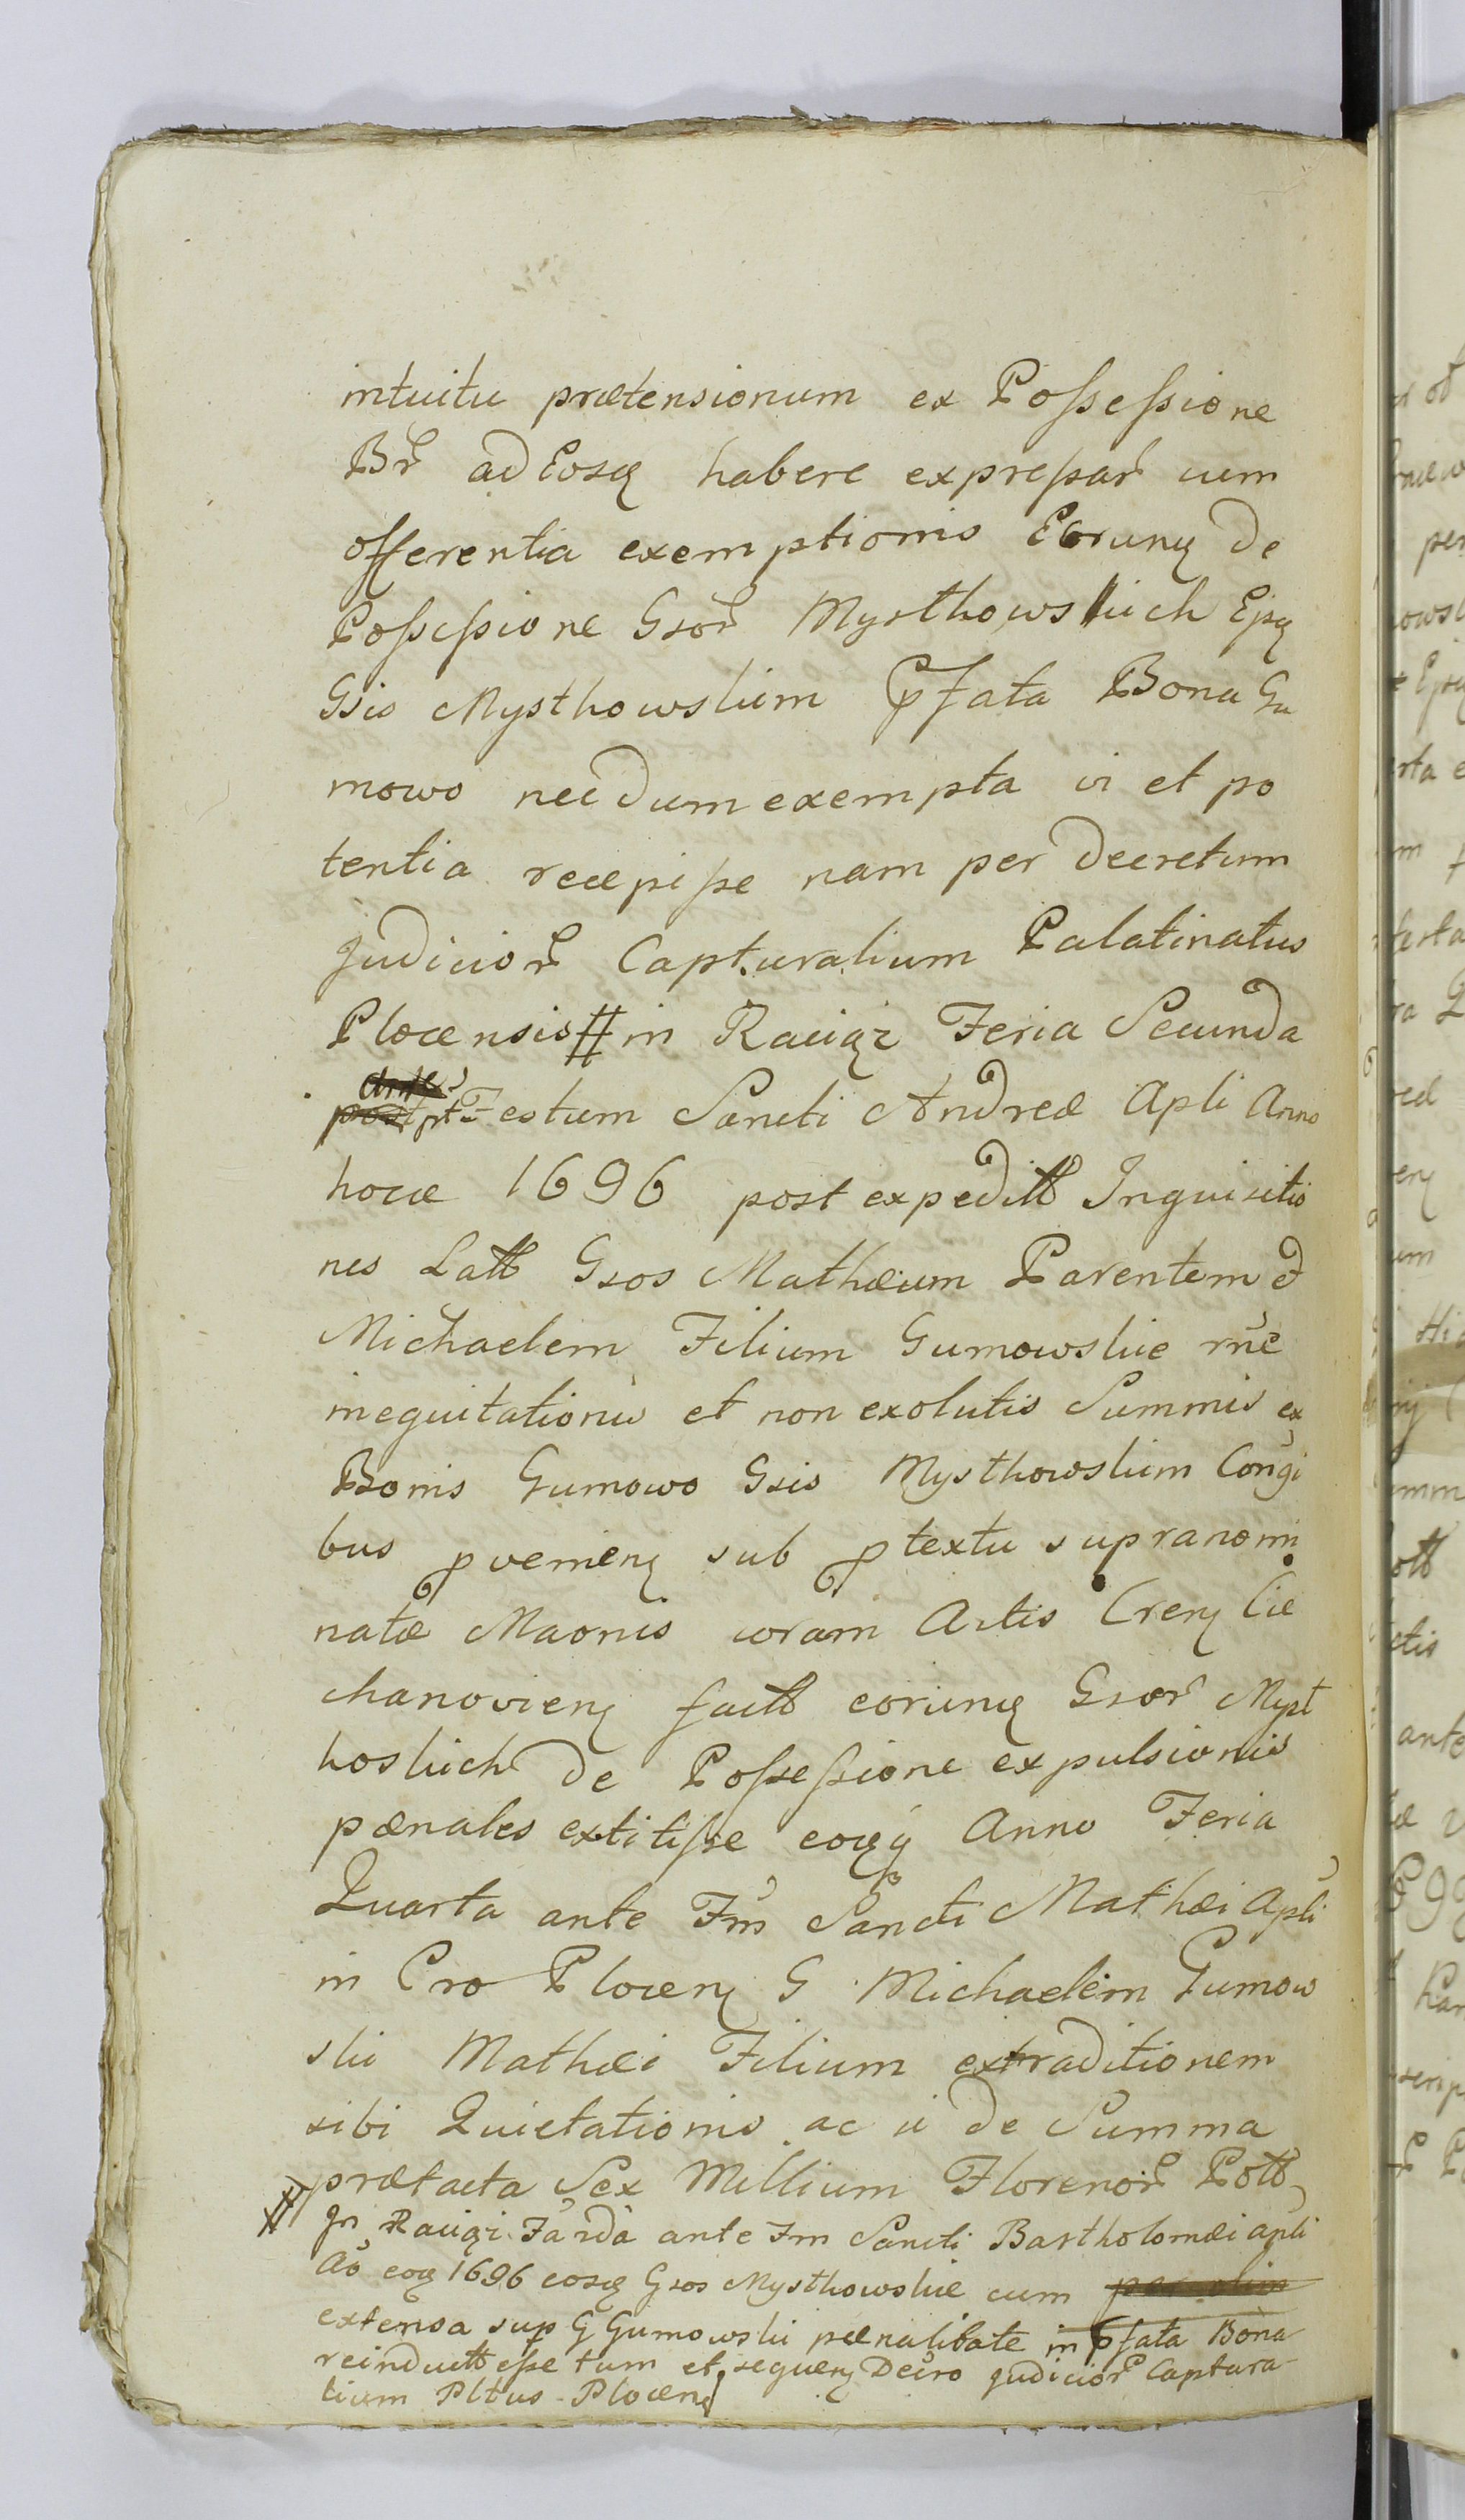 intuitu prætensionum ex Possessione
Br̃ ad Eosq̨ habere expressar̃ cum
offerentia exemptionis Eorunq̨ de
Possessione Gsor̃ Mysthowskich Ejsq̨
Gsis Mysthowskim p̃fata Bona Gu
mowo necdum exempta vi et po
tentia recepisse nam per Decretum
Judicior̃ Capturalium Palatinatus
Plocensis # in Raciąz Feria Secunda
pt Festum Sancti Andreæ Apli Anno
hocce 1696 post expeditt Inquisitio
nes Latt Gsos Mathæum Parentem et
Michaelem Filium Gumowskie rne
inequitationis et non exolutis Summis ex
Bonis Gumowo Gsis Mysthowskim Congi
bus pvenieñ sub ptextu supranomi
natæ Maonis coram Actis Creñ Cie
chanovieñ factt eorunq̨ Gsor̃ Myst
hoskich de Possessione expulsionis
pænales extitisse eoq̨ Anno Feria
Quarta ante Fm Sancti Mathæi Apli
in Cro Ploceñ G Michaelem Gumow
ski Mathæi Filium extraditionem
sibi Quietationis ac si de Summa
prætacta Sex Millium Florenor̃ Poll
# In Raciązi Fa 2da ante Fm Sancti Bartholomæi apli
Ao eoq̨ 1696 eosq̨ Gsos Mysthowskie cum
extensa sup G Gumowski pænalitate in p̃fata Bona
reinductt esse tum et sequeñ Decro Judicior̃ Captura-
lium Pltus Ploceñ